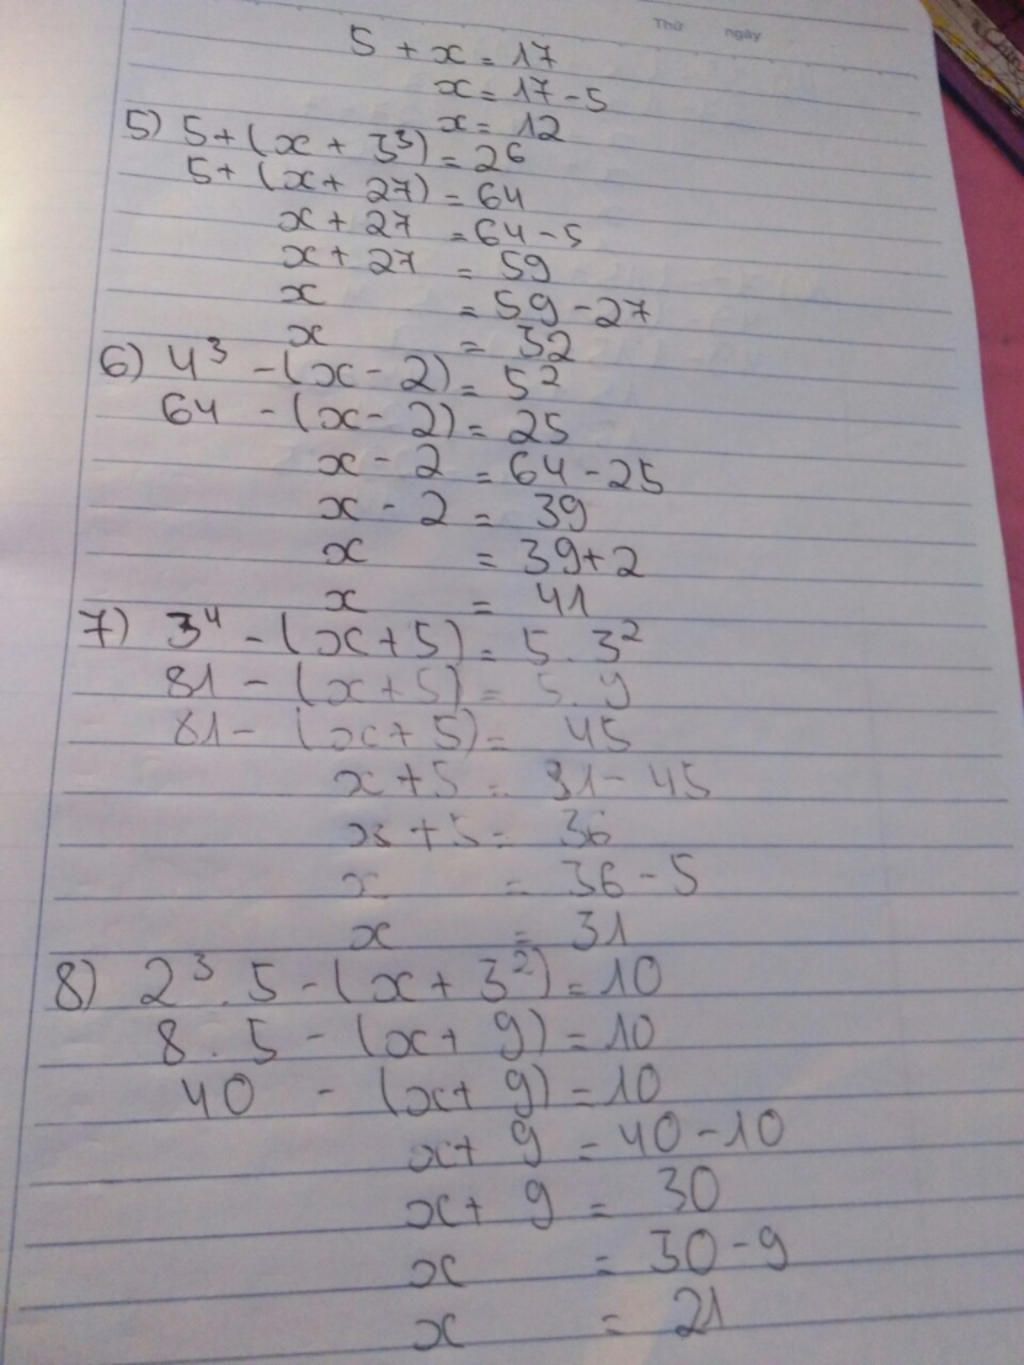 Thứ ngày
5 + x = 17
x = 17 - 5
x = 12
5) 5 + (x + 3³) = 2⁶
5 + (x + 27) = 64
x + 27 = 64 - 5
x + 27 = 59
x = 59 - 27
x = 32
6) 4³ - (x - 2) = 5²
64 - (x - 2) = 25
x - 2 = 64 - 25
x - 2 = 39
x = 39 + 2
x = 41
7) 3⁴ - (x + 5) = 5 . 3²
81 - (x + 5) = 5 . 9
81 - (x + 5) = 45
x + 5 = 81 - 45
x + 5 = 36
x = 36 - 5
x = 31
8) 2³ . 5 - (x + 3²) = 10
8 . 5 - (x + 9) = 10
40 - (x + 9) = 10
x + 9 = 40 - 10
x + 9 = 30
x = 30 - 9
x = 21